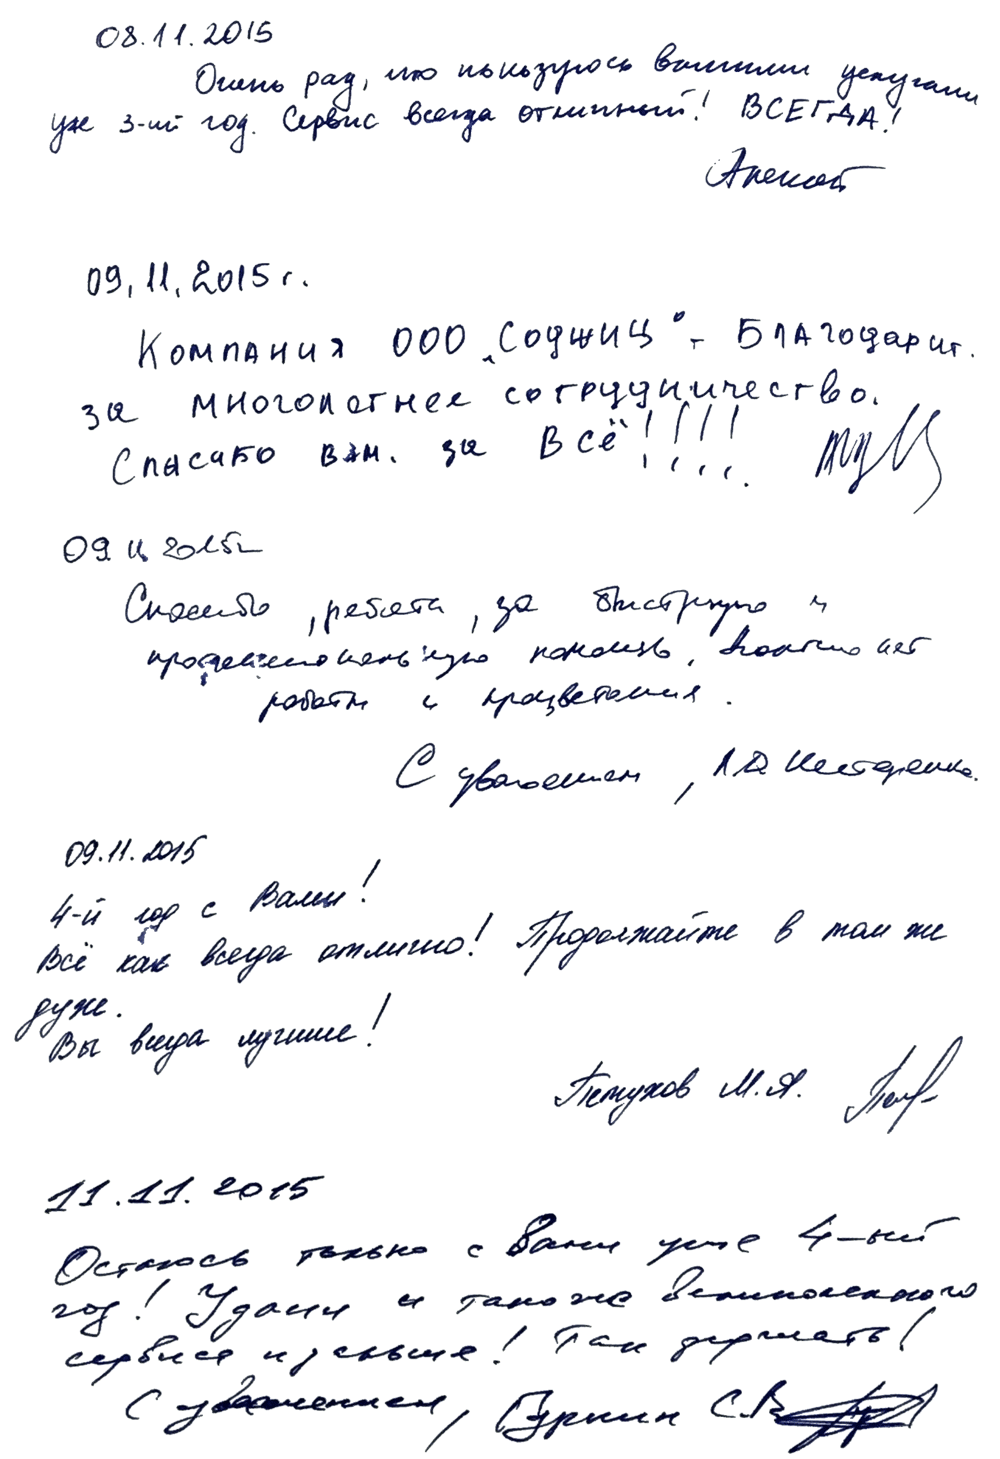 08.11.2015
Очень рад, что пользуюсь вашими услугами
уже 3-ий год. Сервис всегда отличный! ВСЕГДА!
09.11.2015 г.
Компания ООО "Соджиц" - Благодарит.
за многолетнее сотрудничество.
Спасибо вам. за Всё!!!!
09.11.2015г
Спасибо, ребята, за быструю и
профессиональную помощь,
работы и процветания.
С уважением, Л.Д. Нестеренко.
09.11.2015
4-й год с Вами!
Всё как всегда отлично! Продолжайте в том же
духе.
Вы всегда лучшие!
Петухов М.Я.
11.11.2015
Остаюсь только с Вами уже 4-ый
год! Удачи и такого же великолепного
сервиса и дальше! Так держать!
С уважением, Буркин С.В.